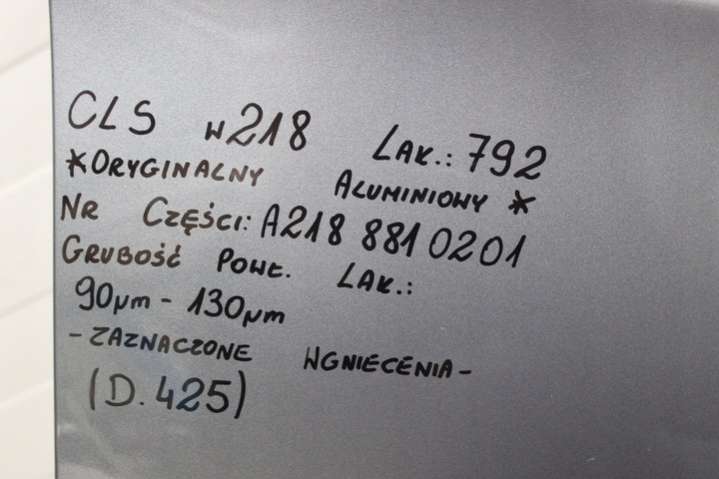 CLS W218 LAK.: 792
*ORYGINALNY ALUMINIOWY*
NR CZĘŚCI: A218 881 0201
GRUBOŚĆ POWŁ. LAK.:
90µm - 130µm
- ZAZNACZONE WGNIECENIA -
(D. 425)